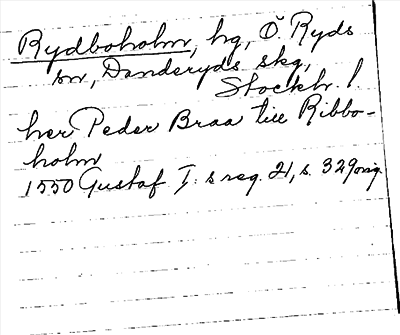 Rydboholm, hg, Ö. Ryds
sn, Danderyds skg,
Stockh. l.
her Peder Braa till Ribbo-
holm
1550 Gustaf I:s reg. 21, s. 329 orig.